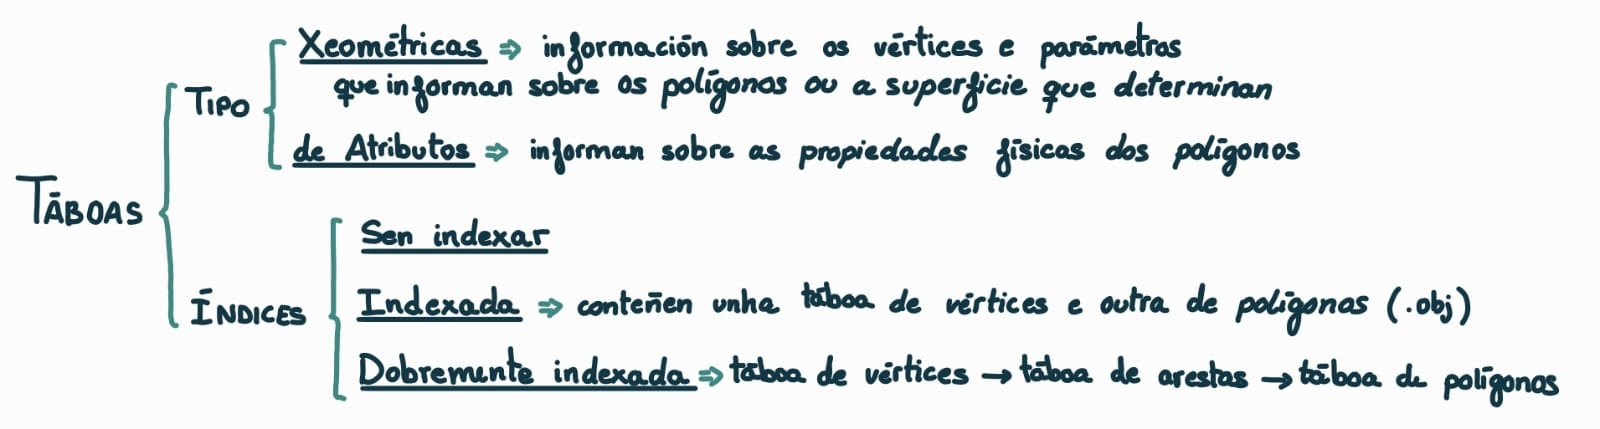 Xeométricas ⇒ información sobre os vértices e parámetros
que informan sobre os polígonos ou a superficie que determinan
TIPO
de Atributos ⇒ informan sobre as propiedades físicas dos polígonos
TÁBOAS
Sen indexar
ÍNDICES
Indexada ⇒ conteñen unha táboa de vértices e outra de polígonos (.obj)
Dobremente indexada ⇒ táboa de vértices → táboa de arestas → táboa de polígonos